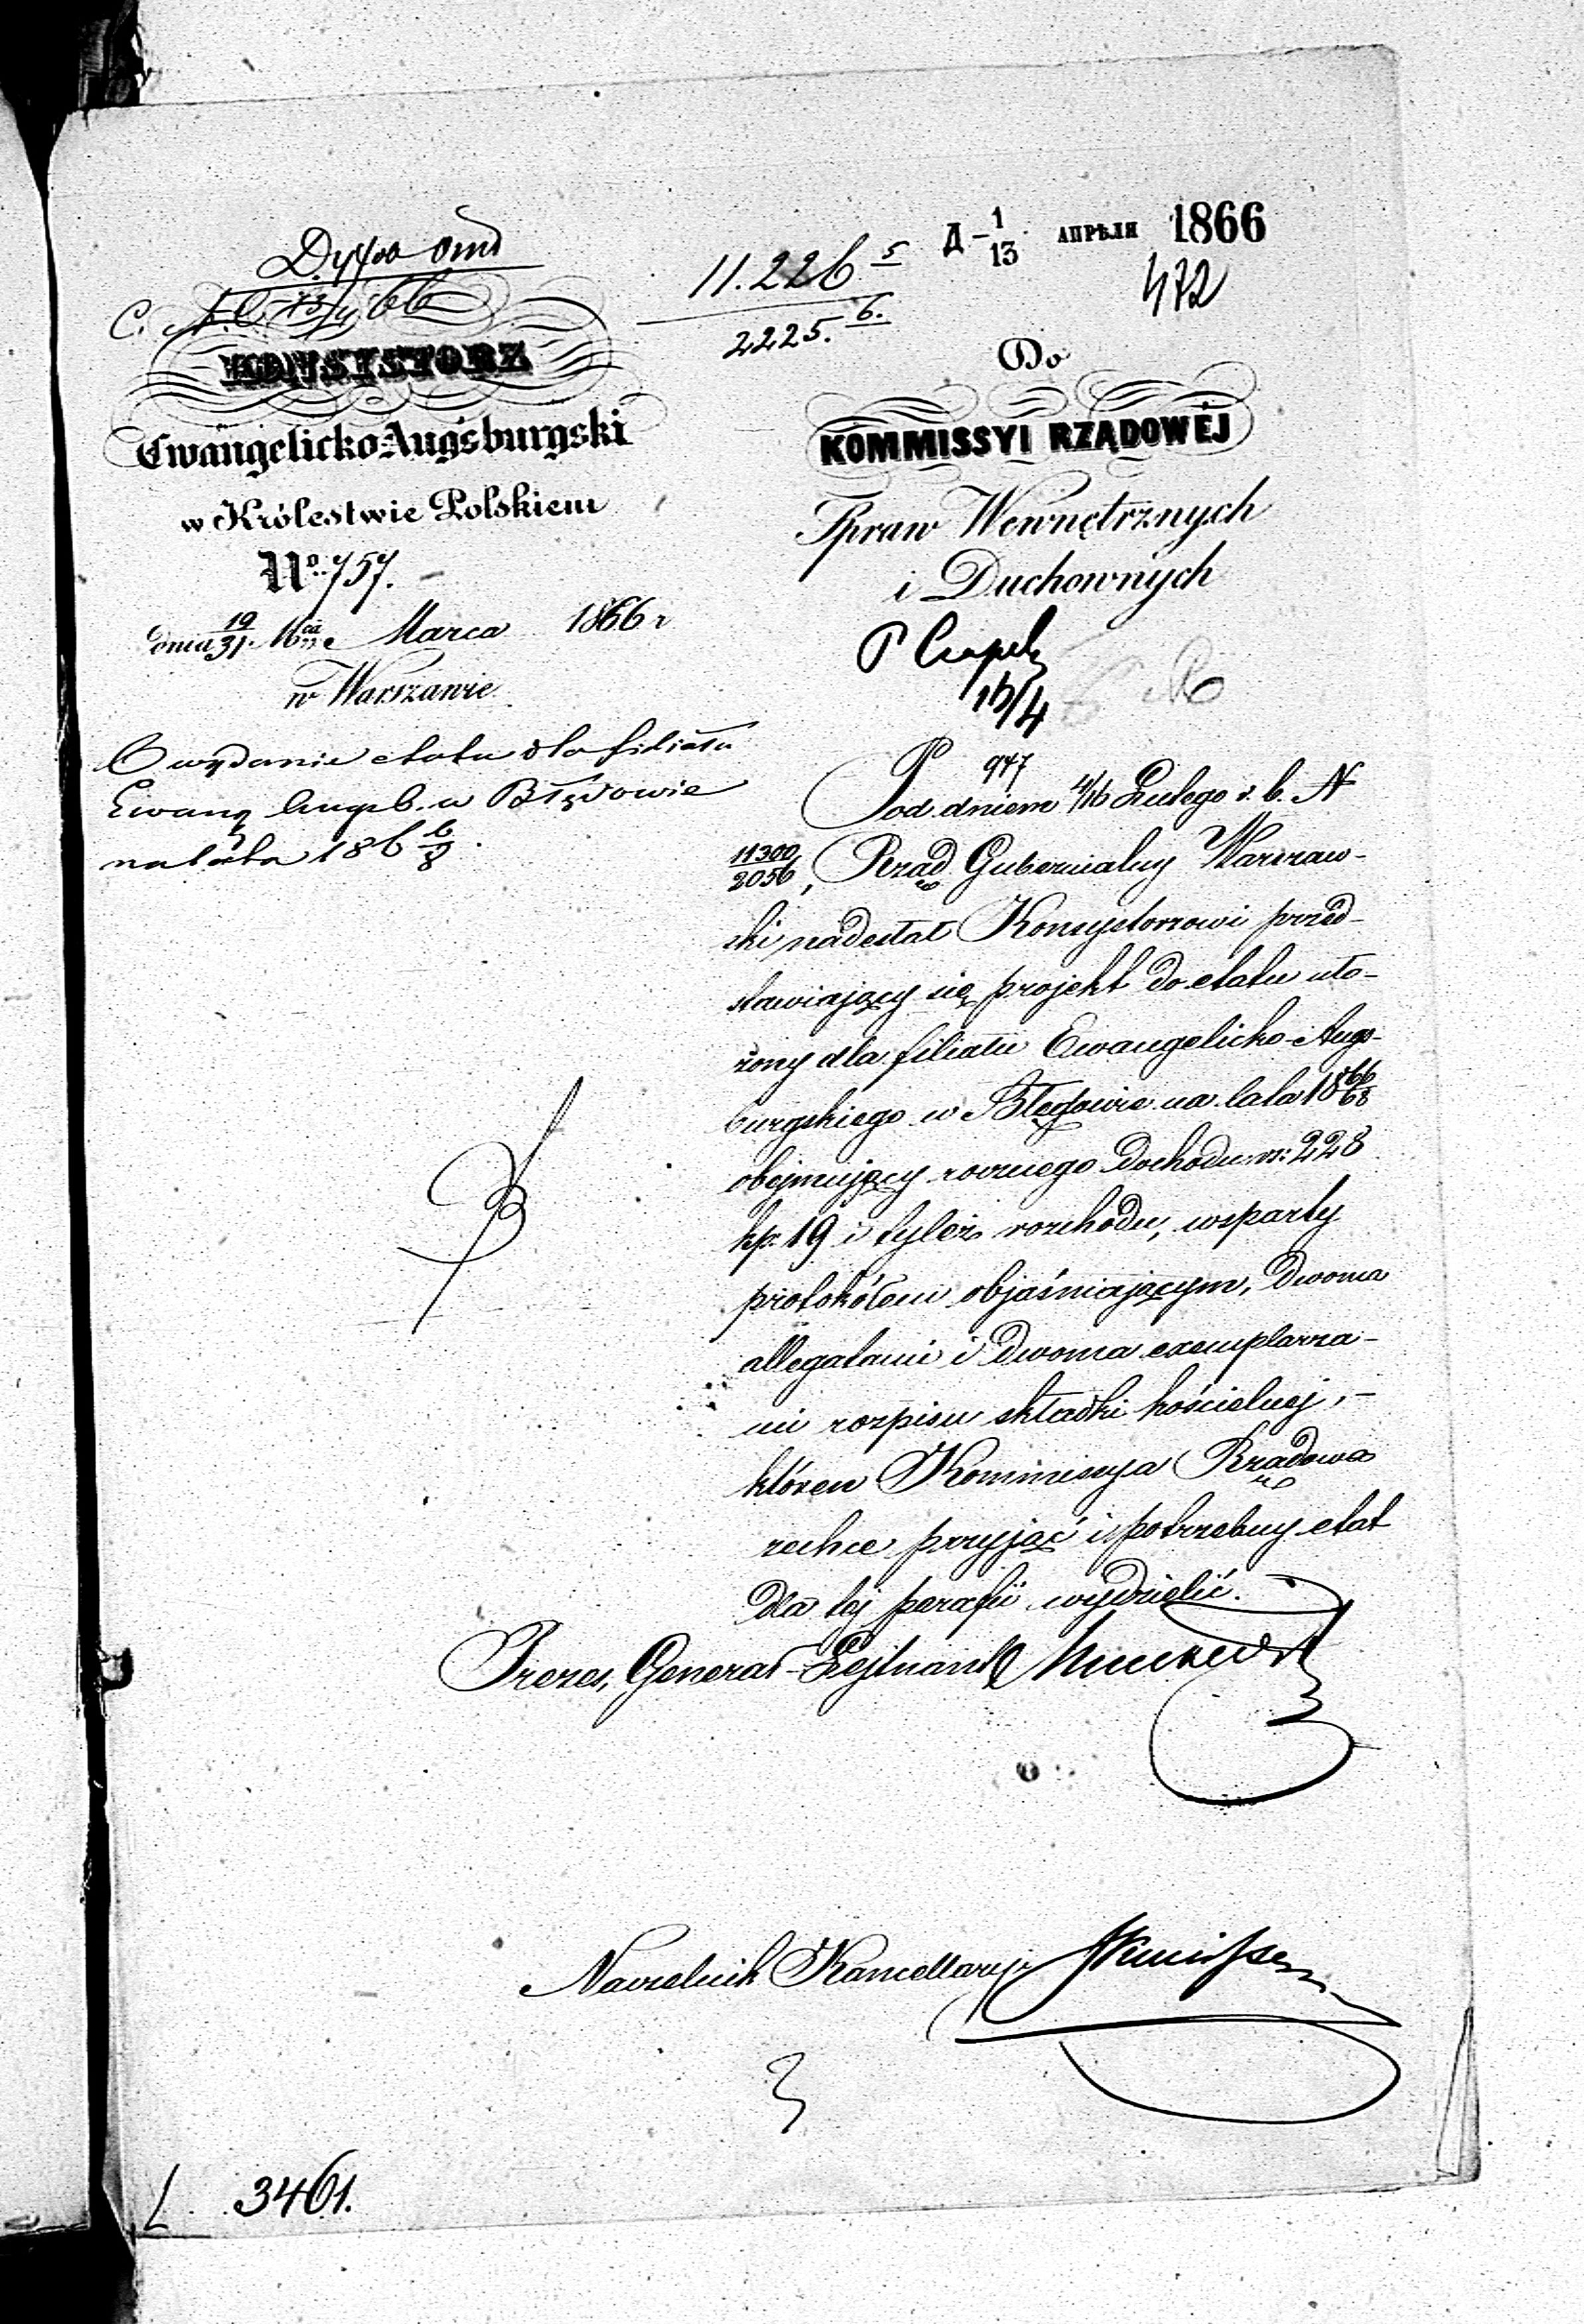 11.226 5
2225. 6.
Д – 1/13 АПРѢЛЯ 1866
472
KONSYSTORZ
Ewangelicko-Augsburgski
w Królestwie Polskiem
No. 757.
dnia 19/31 Mca Marca 1866 r
w Warszawie
Do
KOMMISSYI RZĄDOWÉJ
Spraw Wewnętrznych
i Duchownych
13/4
O wydanie etatu dla filiału
Ewang Augsb. w Błędowie
na lata 186 6/8.
947
Pod dniem 4/16 Lutego r. b. N
11300/2056, Rząd Gubernialny Warszaw-
ski nadesłał Konsystorzowi przed-
stawiający się projekt do etatu uło-
żony dla filiału Ewangelicko-Augs-
burgskiego w Błędowie na lata 18 66/68
obejmujący rocznego dochodu rs: 228
kp. 19 i tyleż rozchodu, wsparty
protokółem objaśniającym, dwoma
allegatami i dwoma exemplarza-
mi rozpisu składki kościelnej, –
któren Kommissya Rządowa
zechce przyjąć i potrzebny etat
dla tej parafii wydzielić.
Prezes, Generał-Lejtnant
Naczelnik Kancellaryi
3461.